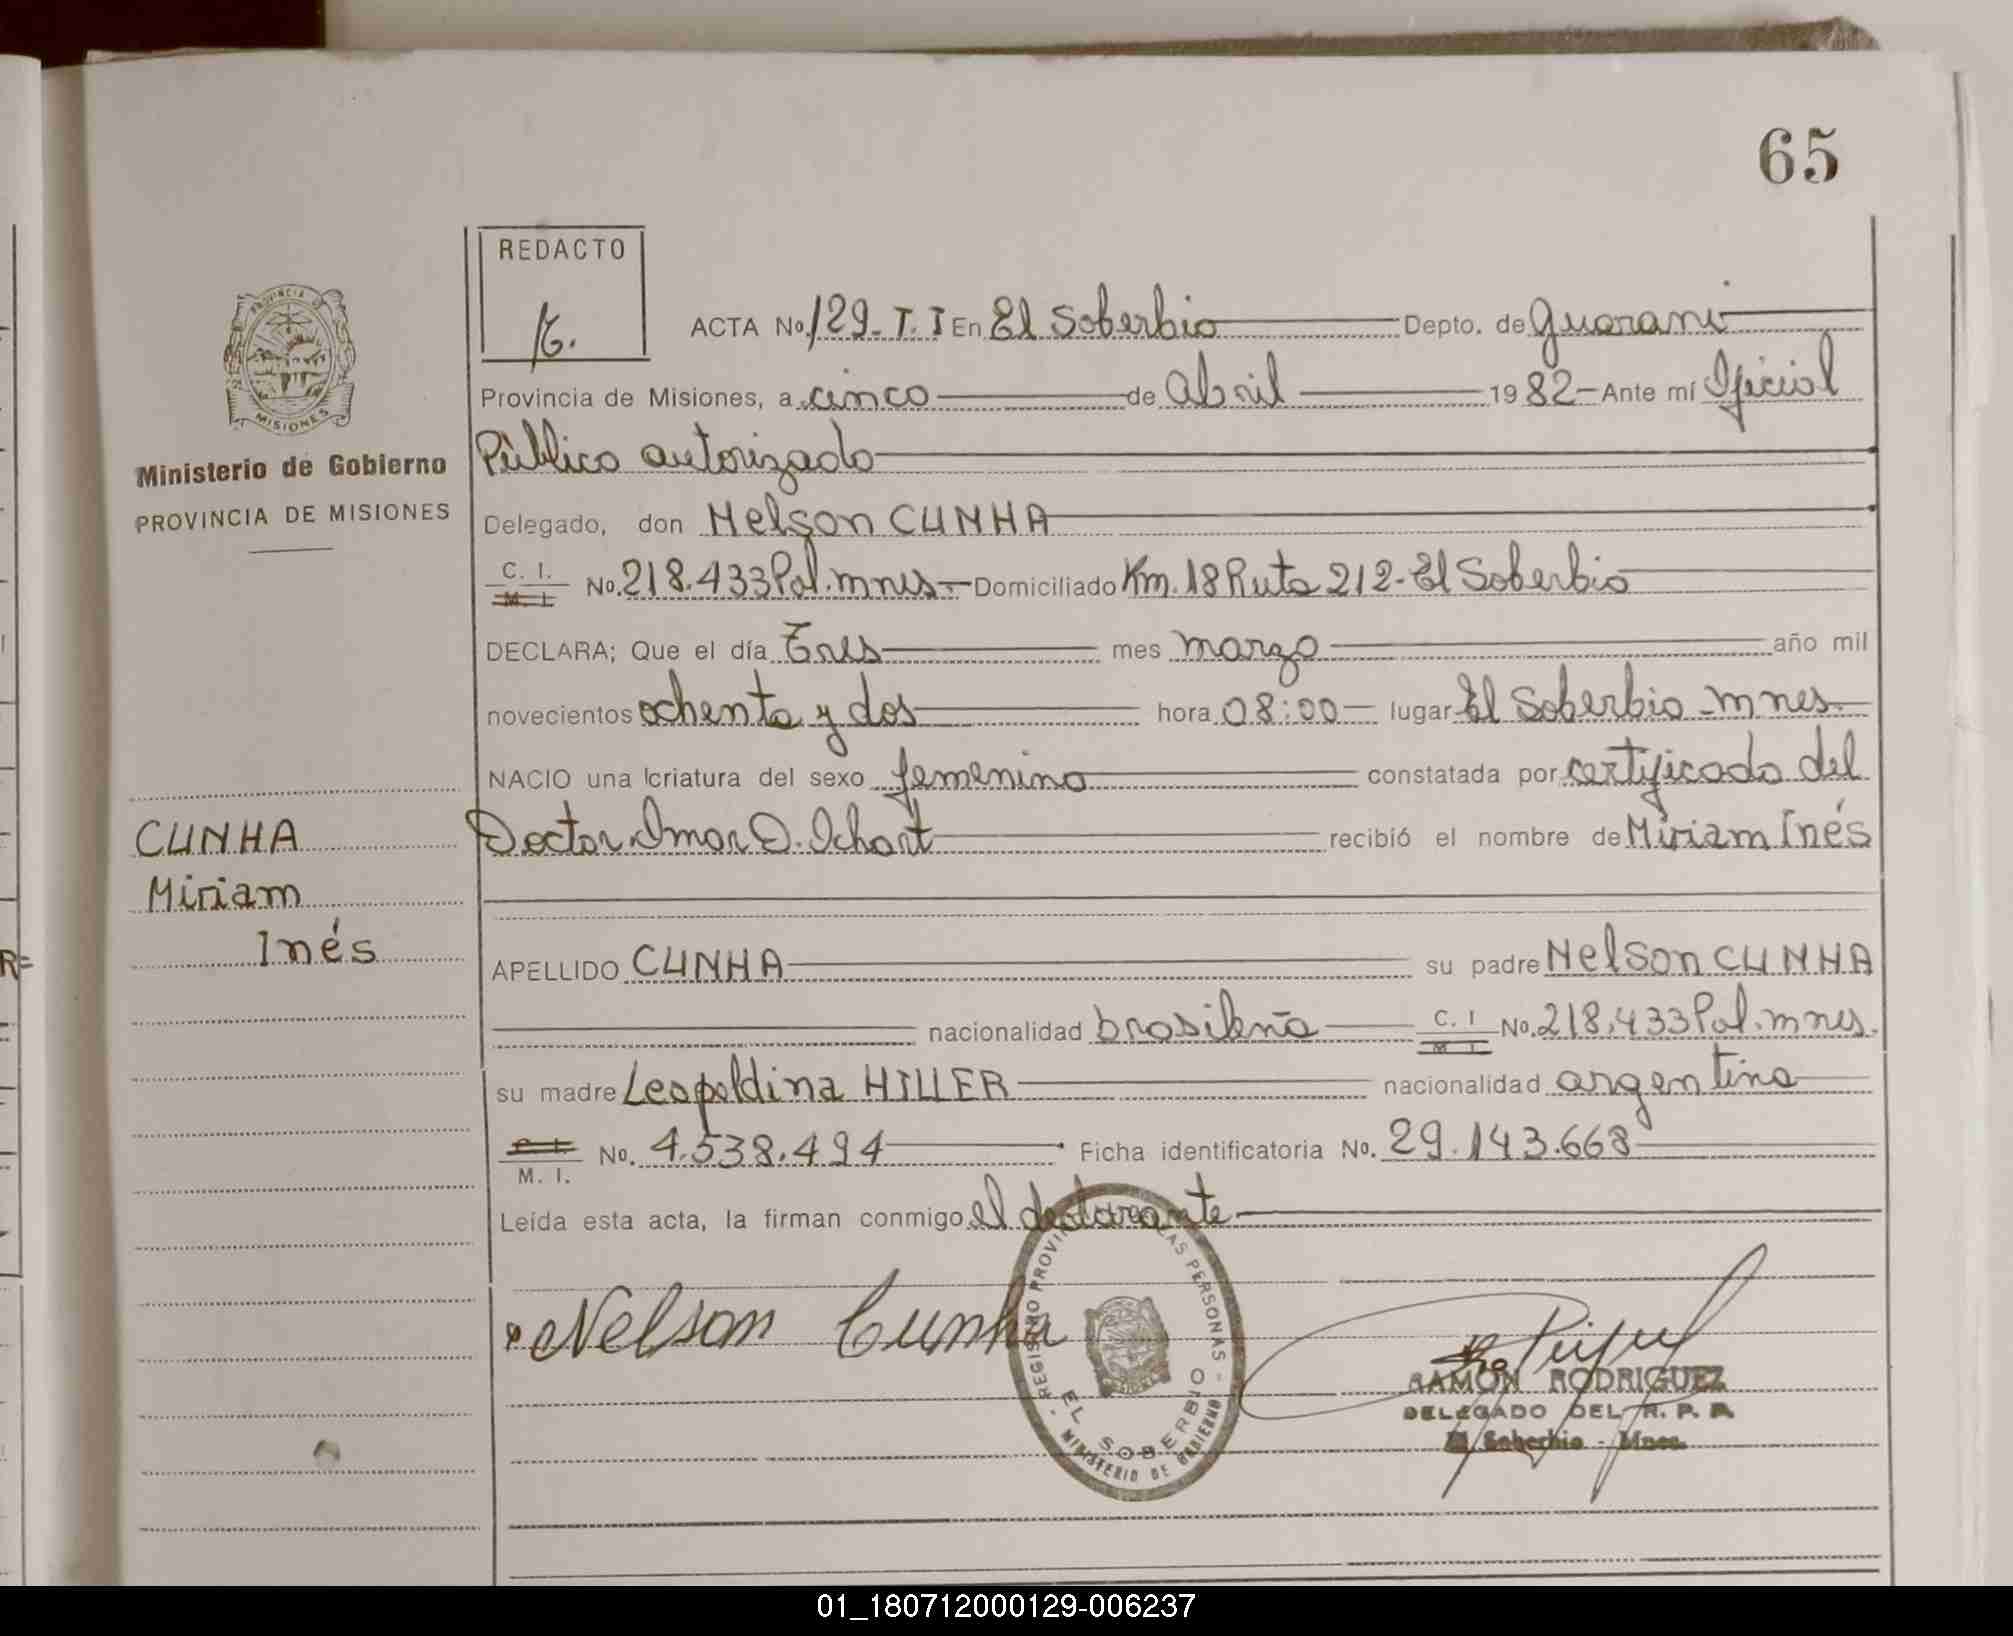 65
REDACTO
ACTA No. 129-T.I En El Soberbio Depto. de Guarani
Provincia de Misiones, a cinco de Abril 1982 Ante mí Oficial
Público autorizado
Delegado, don Nelson CUNHA
C. I. M. I. No. 218.433 Pol. mnes Domiciliado Km. 18 Ruta 212-El Soberbio
DECLARA; Que el día Tres mes marzo año mil
novecientos ochenta y dos hora 08:00 lugar El Soberbio-mnes.
NACIO una criatura del sexo femenino constatada por certificado del
Doctor Omar D. Ichart recibió el nombre de Miriam Inés
APELLIDO CUNHA su padre Nelson CUNHA
nacionalidad brasileña C. I M. I. No. 218.433 Pol. mnes.
su madre Leopoldina HILLER nacionalidad argentina
C. I. M. I. No. 4.538.494 Ficha identificatoria No. 29.143.668
Leída esta acta, la firman conmigo el declarante
Nelson Cunha
PROVINCIA DE MISIONES
Ministerio de Gobierno
PROVINCIA DE MISIONES
CUNHA
Miriam
Inés
REGISTRO PROVINCIAL DE LAS PERSONAS
EL SOBERBIO
MINISTERIO DE GOBIERNO
RAMON RODRIGUEZ
DELEGADO DEL R. P. P.
El Soberbio - Mnes.
01_180712000129-006237